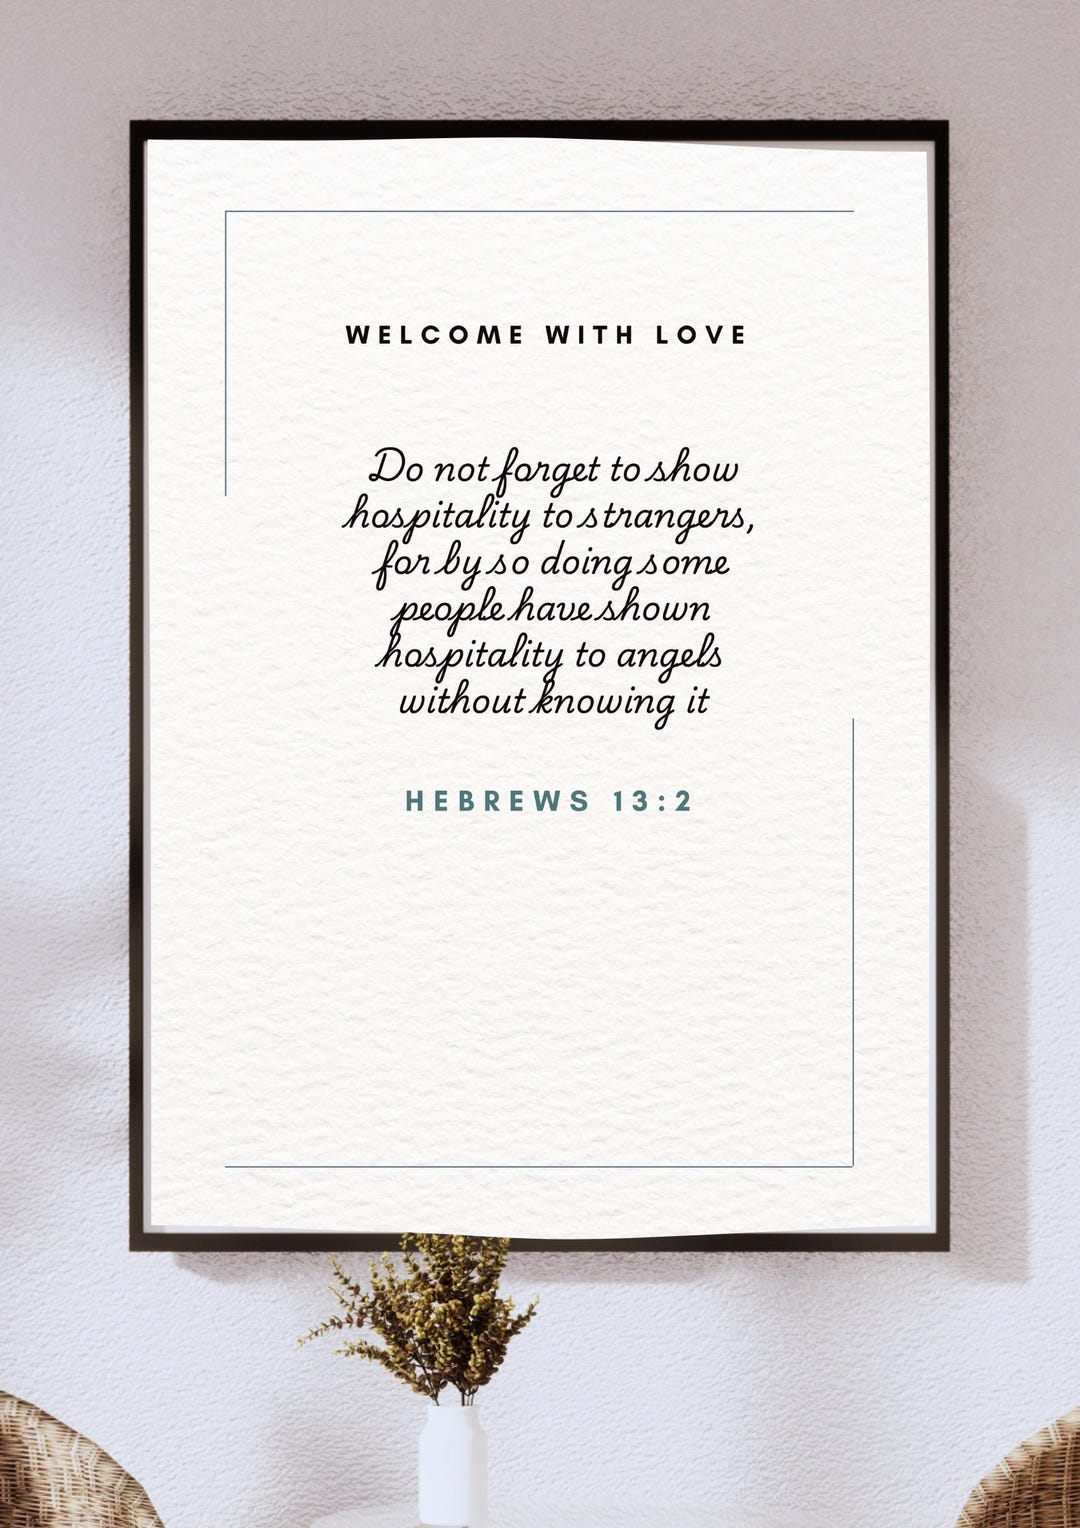 WELCOME WITH LOVE
Do not forget to show
hospitality to strangers,
for by so doing some
people have shown
hospitality to angels
without knowing it
HEBREWS 13:2